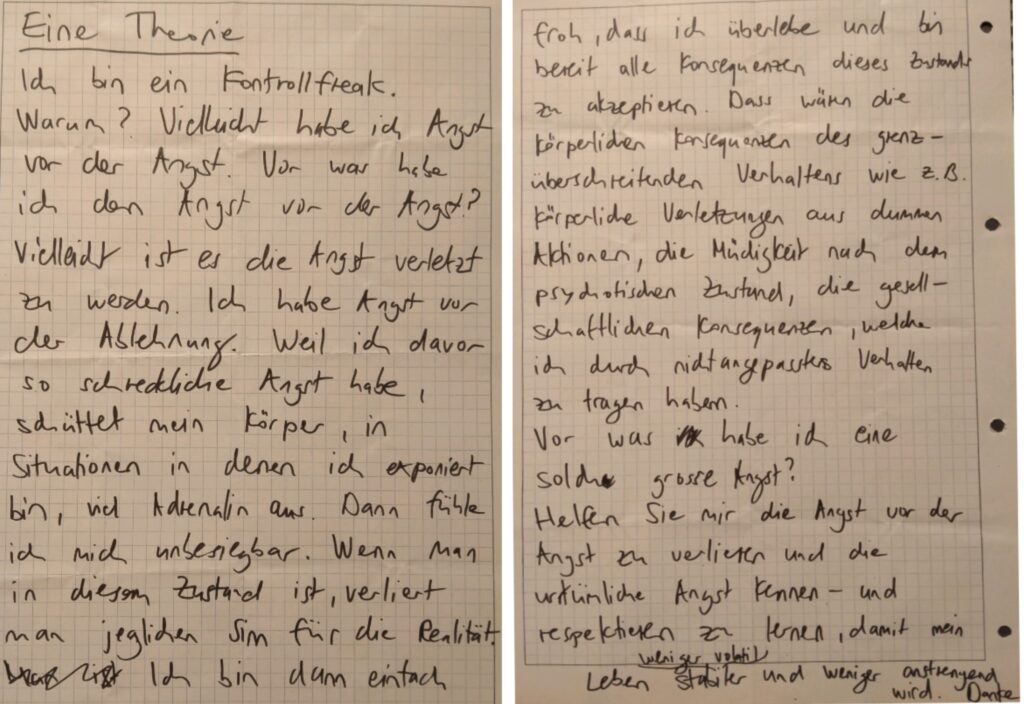 Eine Theorie
Ich bin ein Kontrollfreak.
Warum? Vielleicht habe ich Angst
vor der Angst. Vor was habe
ich den Angst vor der Angst?
Vielleicht ist es die Angst verletzt
zu werden. Ich habe Angst vor
der Ablehnung. Weil ich davor
so schreckliche Angst habe,
schüttet mein Körper, in
Situationen in denen ich exponiert
bin, viel Adrenalin aus. Dann fühle
ich mich unbesiegbar. Wenn man
in diesem Zustand ist, verliert
man jeglichen Sinn für die Realität.
Ich bin dann einfach
froh, dass ich überlebe und bin
bereit alle Konsequenzen dieses Zustands
zu akzeptieren. Dass wären die
körperlichen Konsequenzen des grenz-
überschreitenden Verhaltens wie z.B.
körperliche Verletzungen aus dummen
Aktionen, die Müdigkeit nach dem
psychotischen Zustand, die gesell-
schaftlichen Konsequenzen, welche
ich durch nichtangepasstes Verhalten
zu tragen habem.
Vor was habe ich eine
solche grosse Angst?
Helfen Sie mir die Angst vor der
Angst zu verlieren und die
urtümliche Angst kennen- und
respektieren zu lernen, damit mein
weniger volatil
Leben stabiler und weniger anstrengend
wird. Danke